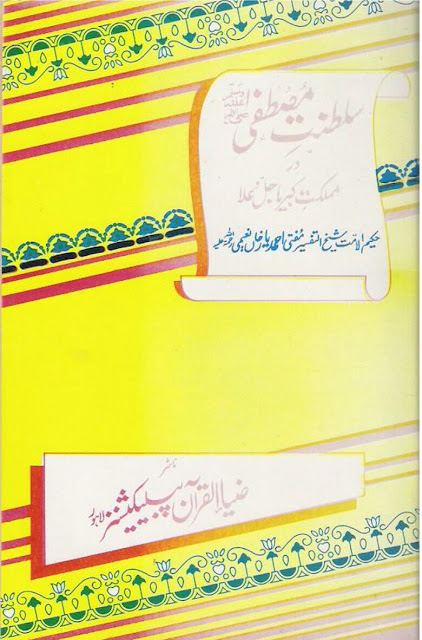 سلطنتِ مصطفیٰ صلی اللہ علیہ وسلم
در
مملکتِ کبریا جل و علا
حکیم الامت شیخ التفسیر مفتی احمد یار خاں نعیمی رحمۃ اللہ علیہ
ناشر
ضیاء القرآن پبلیکیشنز لاہور